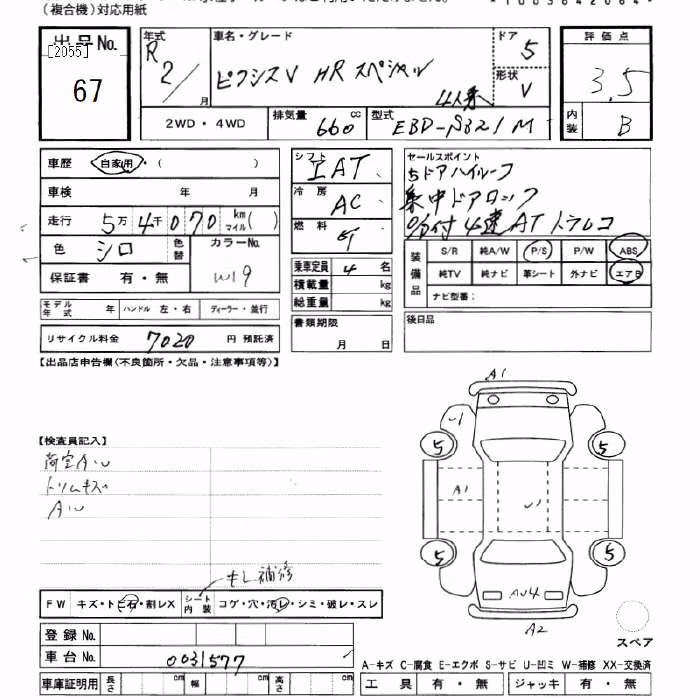 (複合機)対応用紙
出品No.
[2055]
67
年式
R
2/
月
車名・グレード
ピクシスV HRスペシャル
4人乗
ドア
5
形状
V
評価点
3.5
内装
B
2WD・4WD
排気量
660
cc
型式
EBD-S321M
車歴
自家用・( )
車検
年 月
走行
5万4千070
km
マイル( )
色
シロ
色替
カラーNo.
W19
保証書
有・無
シフト
IAT
冷房
AC
燃料
乗車定員
4
名
積載量
kg
総重量
kg
書類期限
月 日
セールスポイント
5ドアハイルーフ
集中ドアロック
4速AT
装備品
S/R
純A/W
P/S
P/W
ABS
純TV
純ナビ
革シート
外ナビ
エアB
ナビ型番:
後日品
モデル年式
年
ハンドル 左・右
ディーラー・並行
リサイクル料金
7020
円 預託済
【出品店申告欄(不良箇所・欠品・注意事項等)】
【検査員記入】
荷室AU
トリムキズ
AU
モレ補修
FW
キズ・トビ石・割レX
シート内装
コゲ・穴・汚レ・シミ・破レ・スレ
登録No.
車台No.
0031577
車庫証明用
長さ
cm
幅
cm
高さ
cm
A1
U1
5
5
A1
U1
5
5
AU4
A2
スペア
A-キズ C-腐食 E-エクボ S-サビ U-凹ミ W-補修 XX-交換済
工具
有・無
ジャッキ
有・無